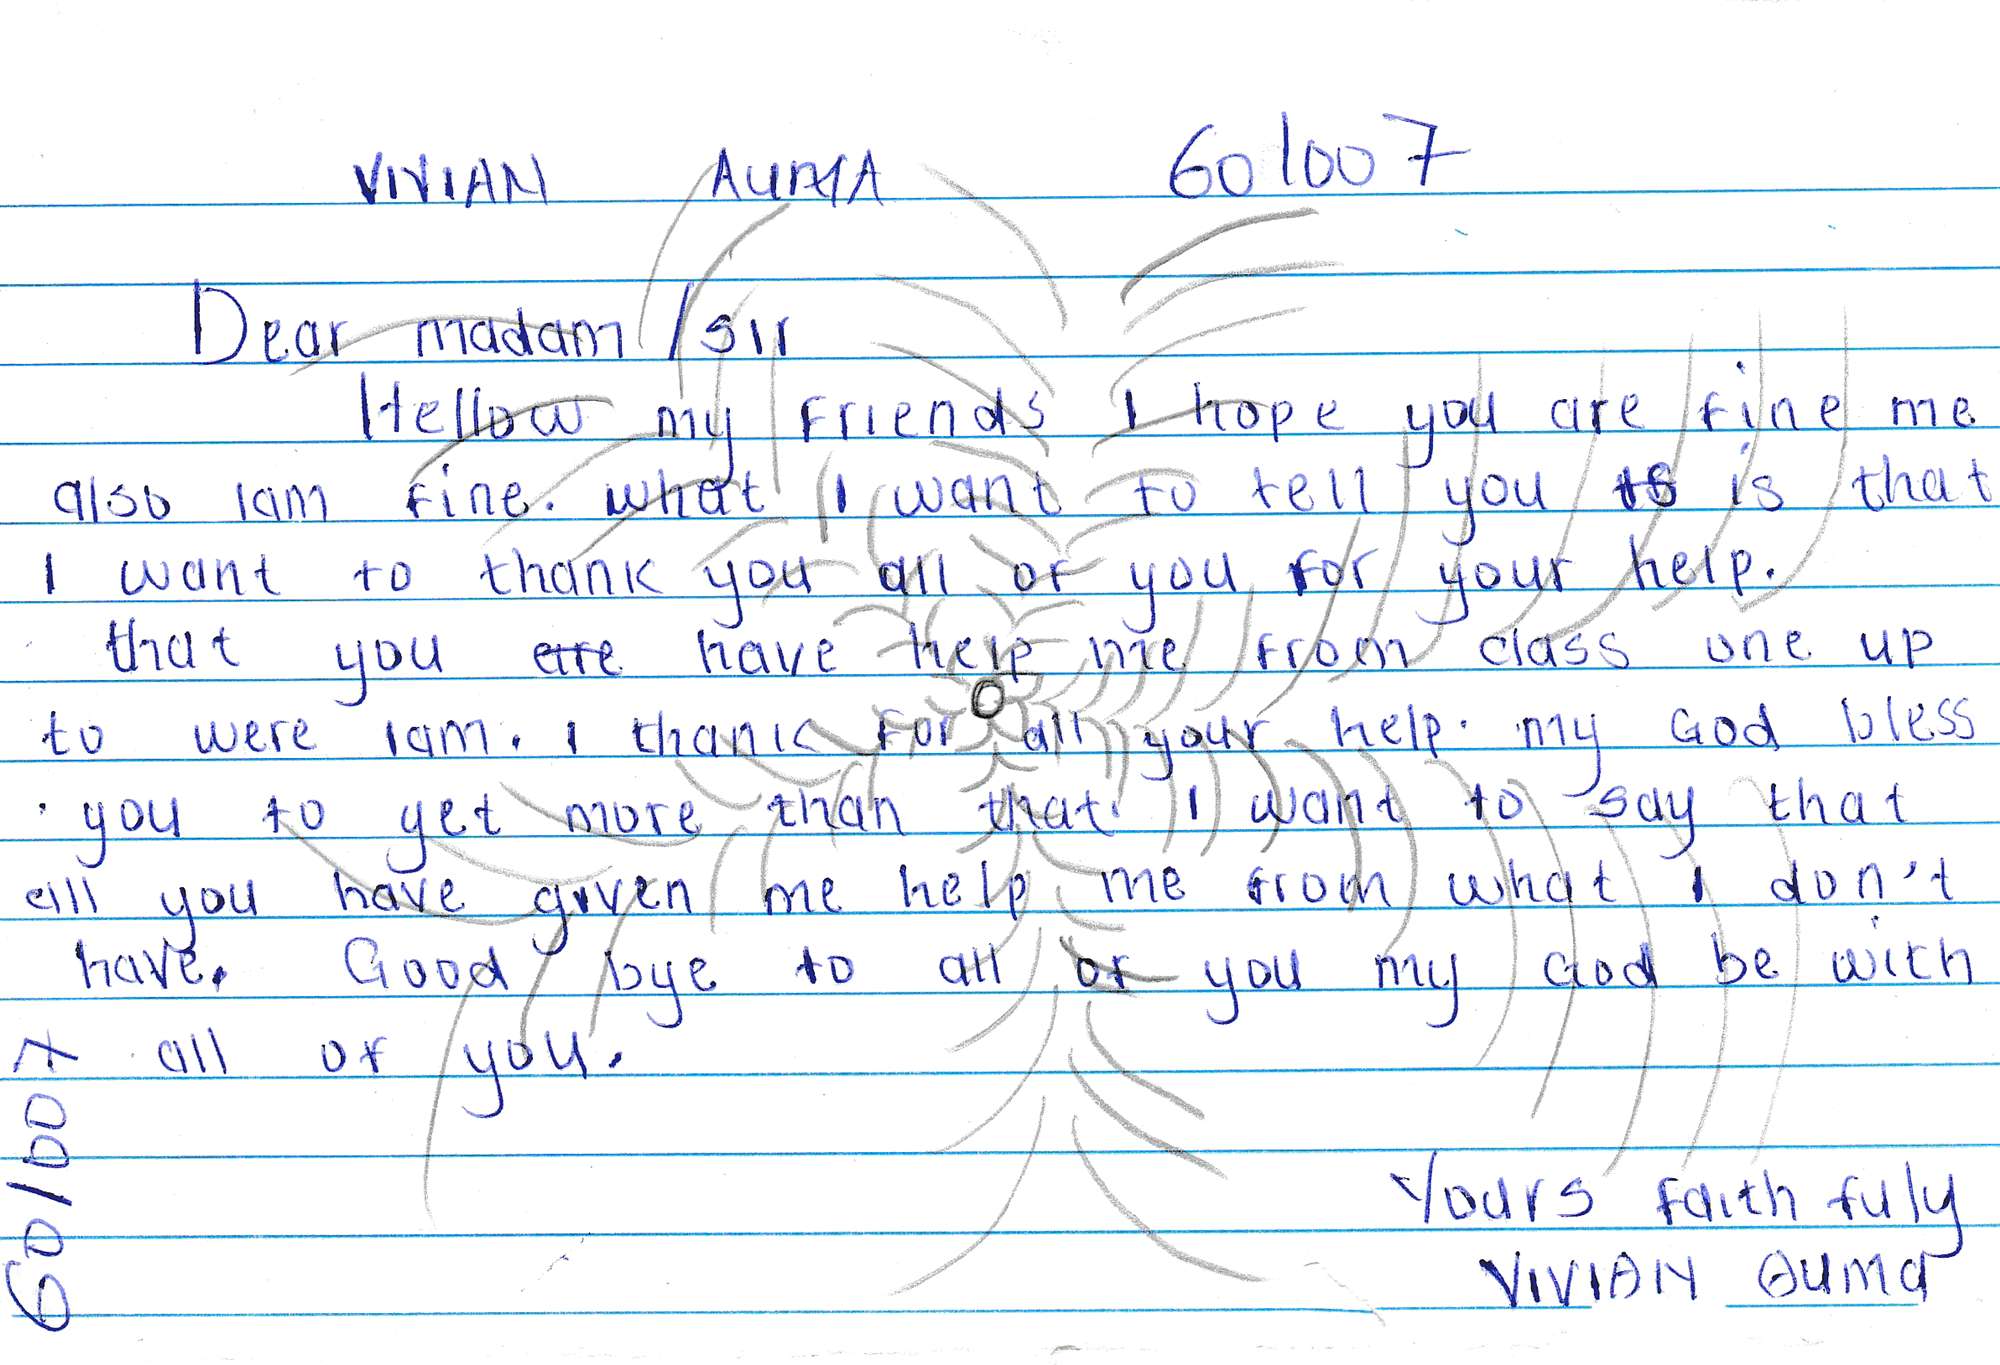 VIVIAN AUMA 60/007
Dear madam / sir
Hellow my friends I hope you are fine me
also iam fine. what I want to tell you to is that
I want to thank you all of you for your help.
that you are have help me from class one up
to were iam. I thank for all your help. my God bless
you to get more than that. I want to say that
all you have given me help me from what I don't
have. Good bye to all of you my God be with
all of you.
60/007
Yours faith fuly
VIVIAN Auma